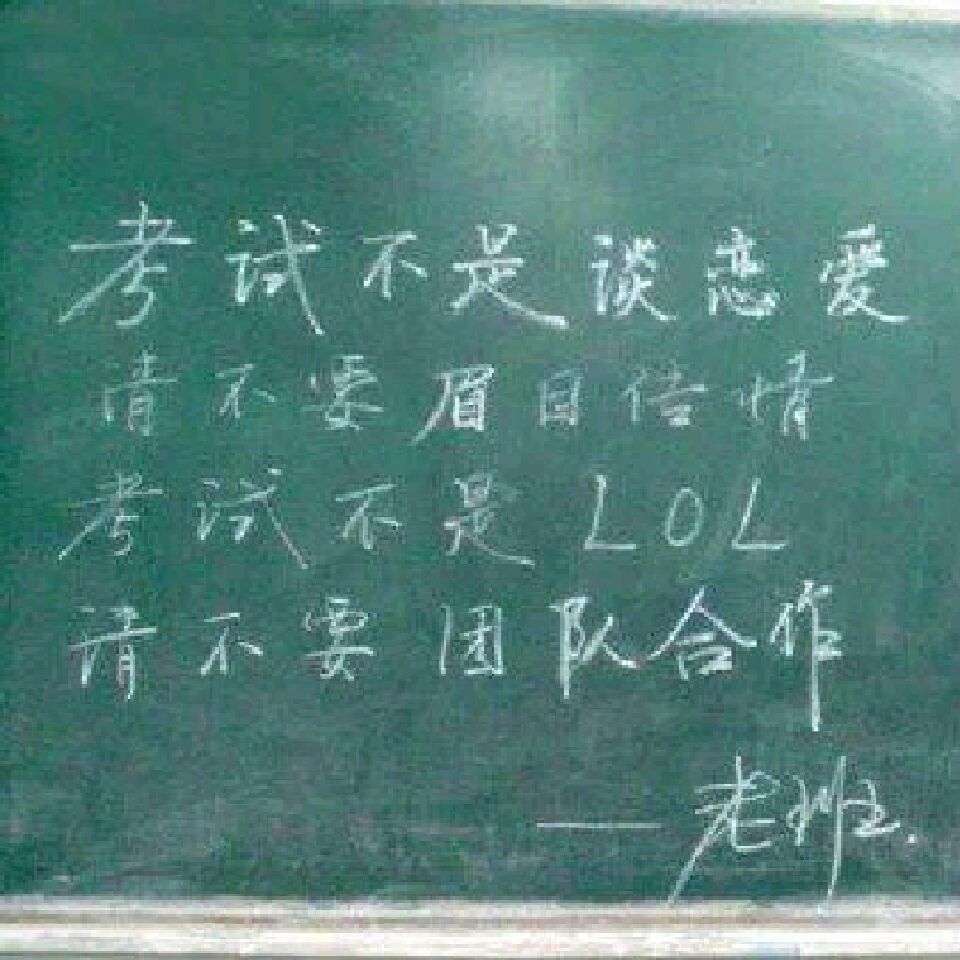 考试不是谈恋爱
请不要眉目传情
考试不是LOL
请不要团队合作
——老班.